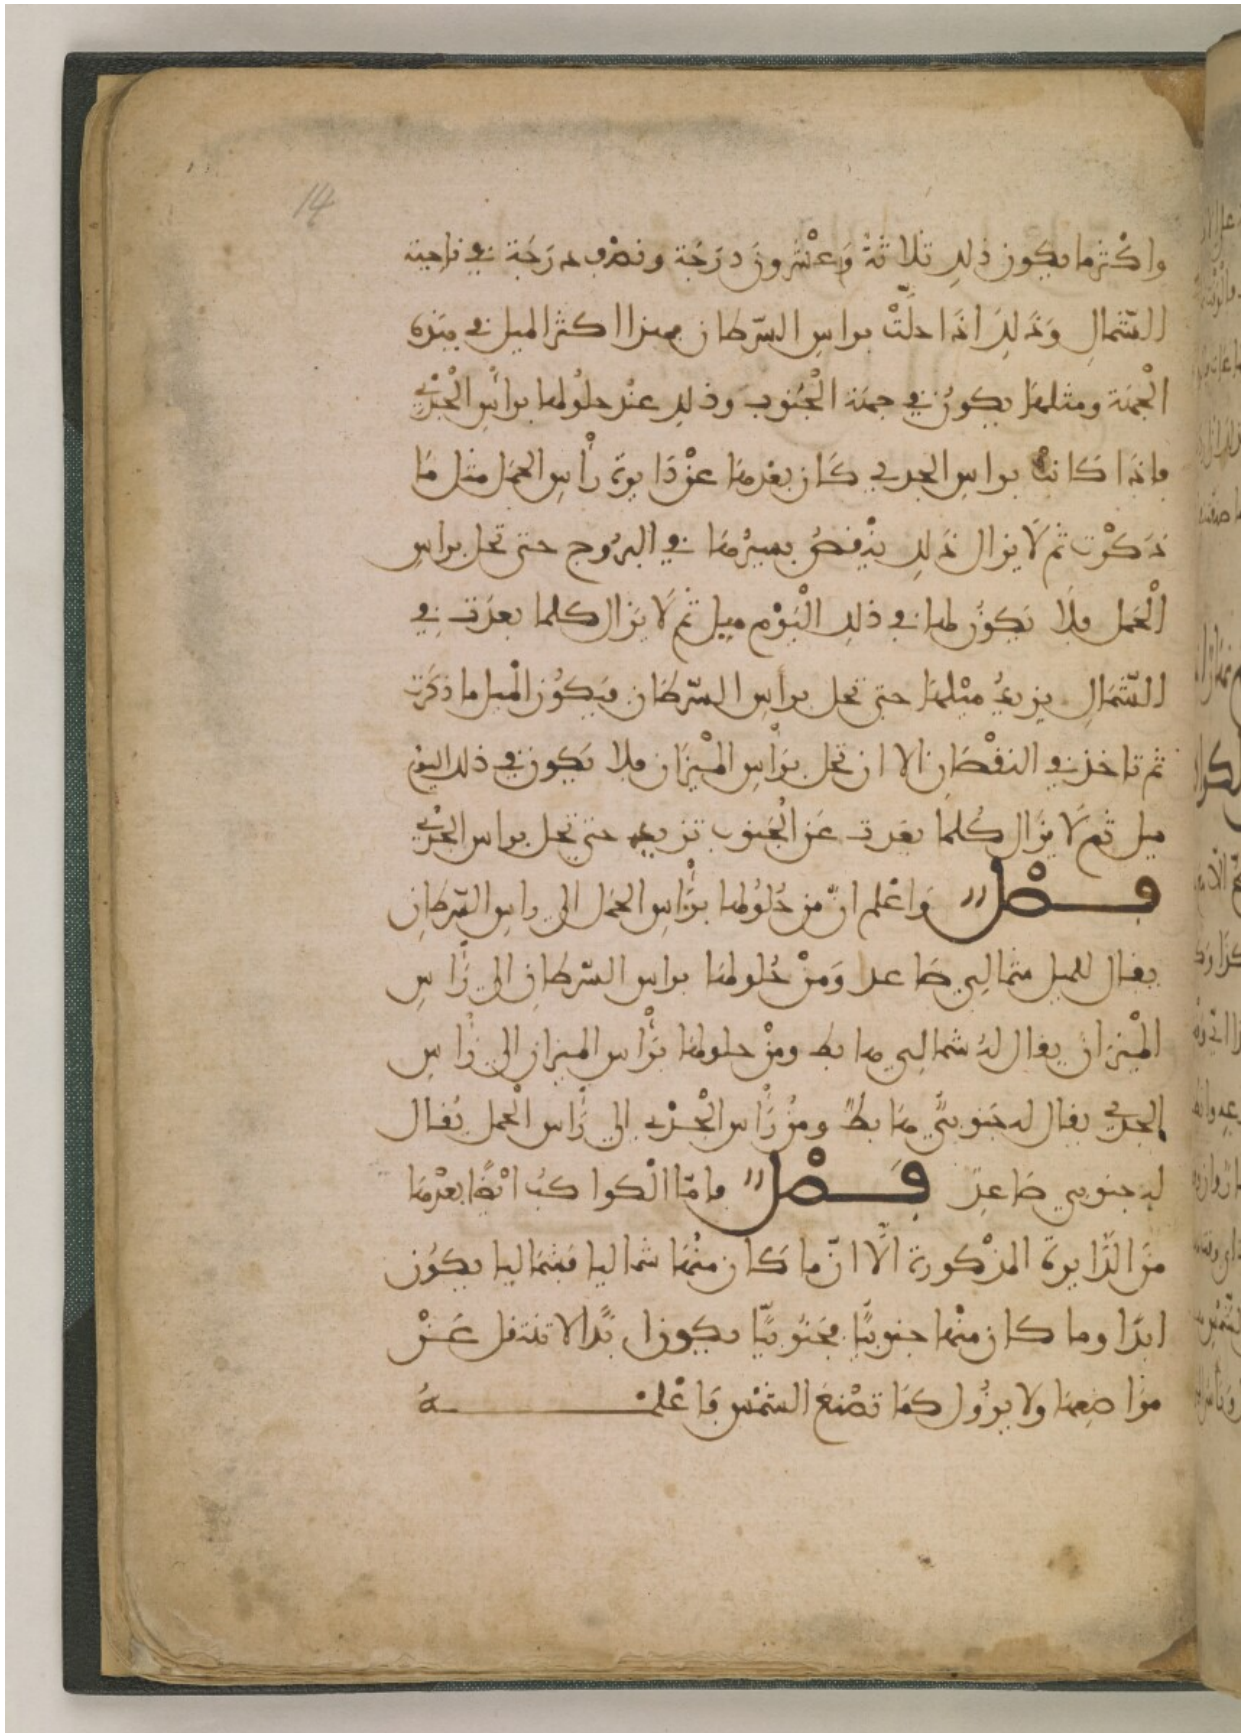 14
واكثر ما يكون ذلك ثلاثةُ وَعشرونَ درَجَة ونصْف درَجَة في ناحية
الشّمالِ وَذَلِكَ اذَا حلَّتْ براسِ السّرطان فهذا اكثر الميل في هذه
الْجهَة ومثلهَا يكونُ في جهة الْجَنُوب وذلك عنْد حلُولها برأسِ الْجَدْي
فاذَا كَانتْ براسِ الجدي كَان بعْدهَا عنْ دَايرة رأْسِ الحمَل مثل مَا
ذكرْت ثم لَا يزال ذَلك ينْقصُ بسيْرهَا في البرُوج حتى تحل براس
الْحَمل فلَا يَكوُن لها في ذلك الْيَوْم ميل ثم لَا يَزال كلما بعدَت في
الشّمَالِ يزيدُ ميْلهَا حتى تحل براسِ السّرطَان فيَكُون الْميل ما ذكَرت
ثم تاخذ في النقْصَانِ الا ان تحل برَأسِ الميْزَان فلا يَكون في ذلك اليوم
ميل ثم لَا يزَال كُلمَا بعَدت عَن الْجَنوب تزيد حتى تحل براس الجدْي
فصْل وَاعْلم انّ منْ حُلُولها برَأْسِ الحمَل الى راسِ السّرطانِ
يقال للميل شماليٌ صَاعد وَمنْ حُلولهَا براس السّرطان الى رَأسِ
الميْزَان يقال لهُ شمالي هابط ومنْ حلولهَا برَأْس الميزان الى رَأسِ
الجدي يقال له جَنوبيٌّ هَابطٌ ومنْ رَأْس الْجَدْي الى رَأس الْحمل يُقال
له جنوبي صَاعدٌ فَصْل فامّا الْكواكبُ ايْضًا بعْدهَا
منَ الدَّايرة المذْكورة الَّا انّ ما كَان منْهَا شماليا فشَماليا يكوُن
ابدًا وما كان منْها جنوبيًّا فجَنُوبيًّا يكون ابدًا لا تنتقل عَنْ
موَاضِعهَا ولا يزُول كمَا تصْنعَ الشّمْس فَاعْلمْــــهُ